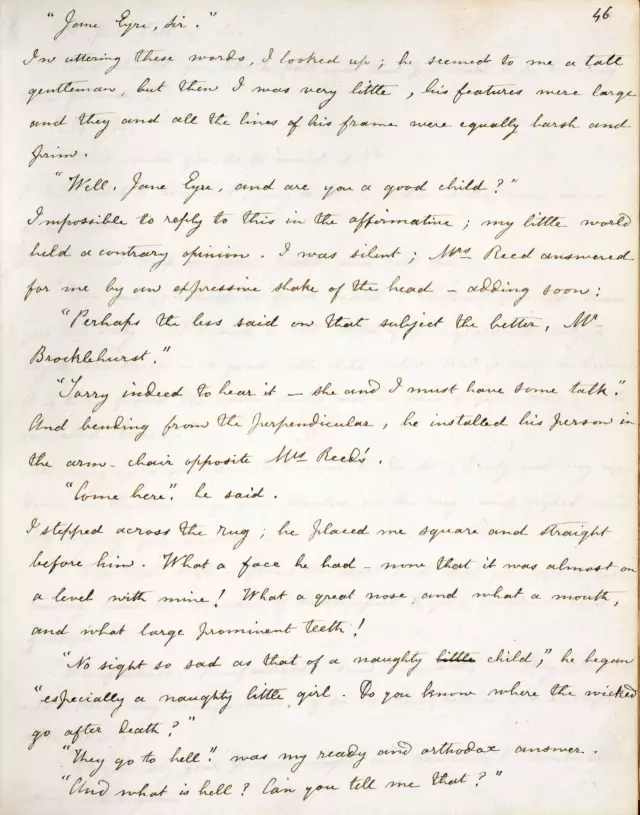 46
"Jane Eyre, sir."
In uttering these words, I looked up; he seemed to me a tall
gentleman, but then I was very little, his features were large
and they and all the lines of his frame were equally harsh and
prim.
"Well, Jane Eyre, and are you a good child?"
Impossible to reply to this in the affirmative; my little world
held a contrary opinion. I was silent; Mrs Reed answered
for me by an expressive shake of the head – adding soon;
"Perhaps the less said on that subject the better, Mr
Brocklehurst."
"Sorry indeed to hear it – she and I must have some talk".
And bending from the perpendicular, he installed his person in
the arm-chair opposite Mrs Reed's.
"Come here". he said.
I stepped across the rug; he placed me square and straight
before him. What a face he had – now that it was almost on
a level with mine! What a great nose, and what a mouth,
and what large prominent teeth!
"No sight so sad as that of a naughty little child", he began
"especially a naughty little girl. Do you know where the wicked
go after death?"
"They go to hell". was my ready and orthodox answer.
"And what is hell? Can you tell me that?"